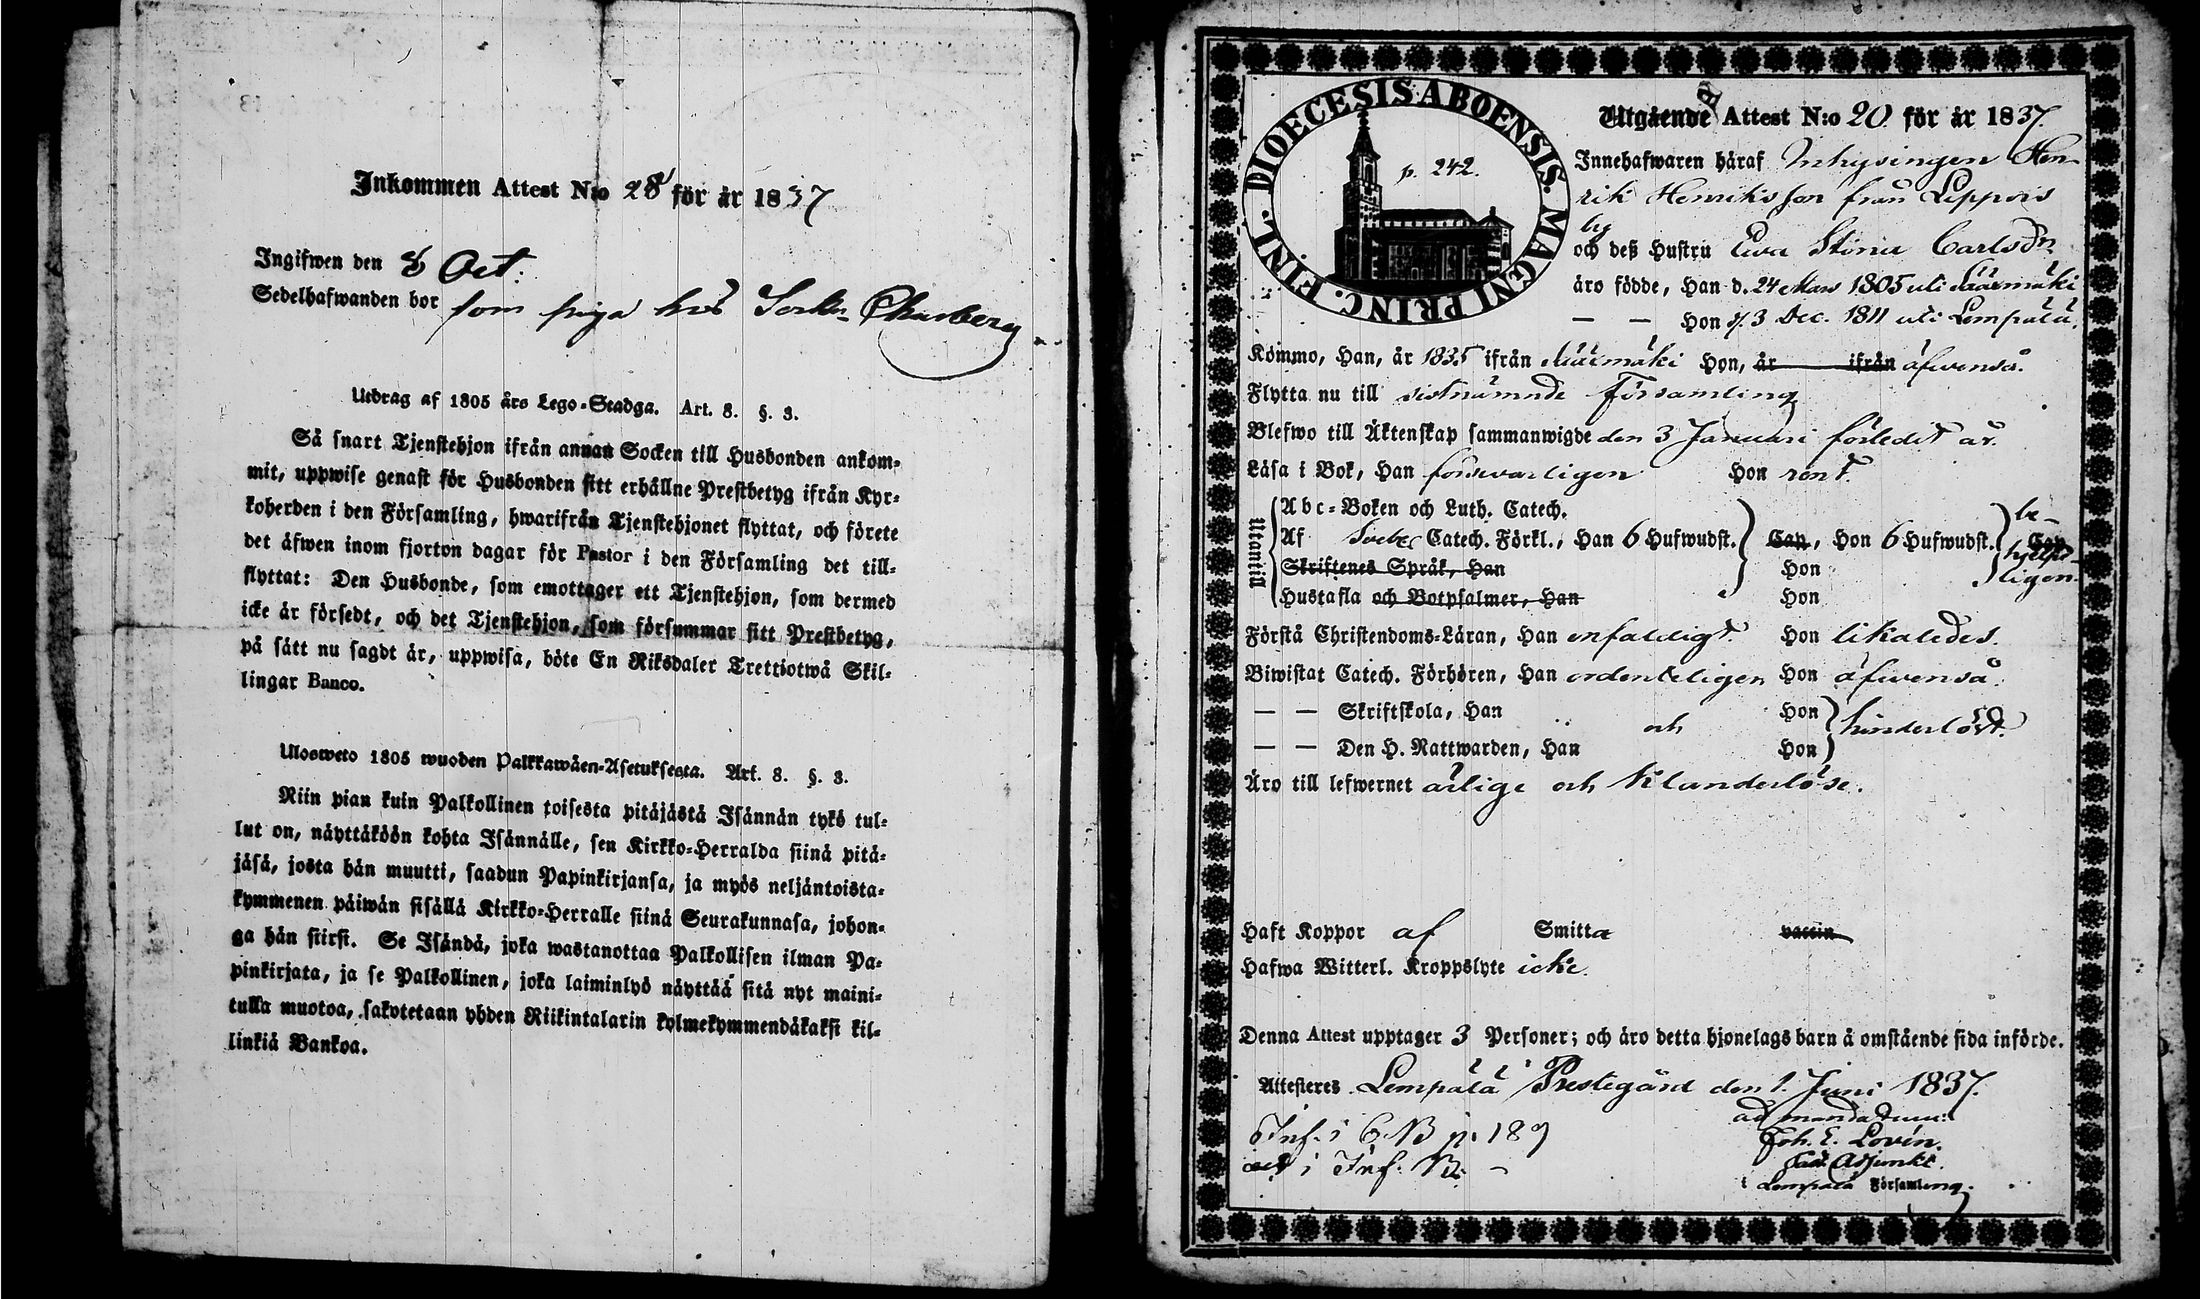 Inkommen Attest N:o 28 för år 1837
Ingifwen den 8 Oct:
Sedelhafwanden bor som piga hos
Utdrag af 1805 års Lego-Stadga. Art. 8. §. 3.
Så snart Tjenstehjon ifrån annan Socken till Husbonden ankom-
mit, uppwise genast för Husbonden sitt erhållne Prestbetyg ifrån Kyr-
koherden i den Församling, hwarifrån Tjenstehjonet flyttat, och förete
det äfwen inom fjorton dagar för Pastor i den Församling det till-
flyttat: Den Husbonde, som emottager ett Tjenstehjon, som dermed
icke är försedt, och det Tjenstehjon, som försummar sitt Prestbetyg,
på sätt nu sagdt är, uppwisa, böte En Riksdaler Trettiotwå Skil-
lingar Banco.
Ulosweto 1805 wuoden Palkkawäen-Asetuksesta. Art. 8. §. 3.
Niin pian kuin Palkollinen toisesta pitäjästä Isännän tykö tul-
lut on, näyttäköön kohta Isännälle, sen Kirkko-Herralda siinä pitä-
jäsä, josta hän muutti, saadun Papinkirjansa, ja myös neljäntoista-
kymmenen päiwän sisällä Kirkko-Herralle siinä Seurakunnasa, johon-
ga hän siirsi. Se Isändä, joka wastanottaa Palkollisen ilman Pa-
pinkirjata, ja se Palkollinen, joka laiminlyö näyttää sitä nyt maini-
tulla muotoa, sakotetaan yhden Riikintalarin kolmekymmendäkaksi kil-
linkiä Bankoa.
DIOECESIS ABOENSIS. MAGNI PRINC. FINL.
p. 242.
Utgående Attest N:o 20 för år 1837.
Innehafwaren häraf Inhysingen Hen-
rik Henriksson från Leppois
by
och deß Hustru Ewa Stina Carlsdr
äro födde, Han d. 24 Mars 1805 uti Sääxmäki
— — Hon d. 3 Dec. 1811 uti Lempälä.
Kommo, Han, år 1835 ifrån Sääxmäki Hon, år ifrån äfwenså.
Flytta nu till sistnämnde församling
Blefwo till Äktenskap sammanwigde den 3 Januari förledit år.
Läsa i Bok, Han förswarligen Hon rent.
Utantill
Abc-Boken och Luth. Catech.
Af Swebel. Catech. Förkl., Han 6 Hufwudst. Cap, Hon 6 Hufwudst. Cap be-
hjelp-
ligen.
Skriftenes Språk, Han Hon
Hustafla och Botpsalmer, Han Hon
Förstå Christendoms-Läran, Han enfaldigt. Hon likaledes.
Biwistat Catech. Förhören, Han ordenteligen Hon äfwenså.
— — Skriftskola, Han Hon
och hinderlöst.
— — Den H. Nattwarden, Han Hon
Äro till lefwernet ärlige och klanderlöse.
Haft Koppor af Smitta vaccin
Hafwa Witterl. Kroppslyte icke.
Denna Attest upptager 3 Personer; och äro detta hjonelags barn å omstående sida införde.
Attesteres Lempälä Prestegård den 1 Juni 1837.
ad mandatum
Inf. i C. B p. 189 Joh. E. Lovén.
i Inf. B. — Past. Adjunkt.
i Lempälä Församling.